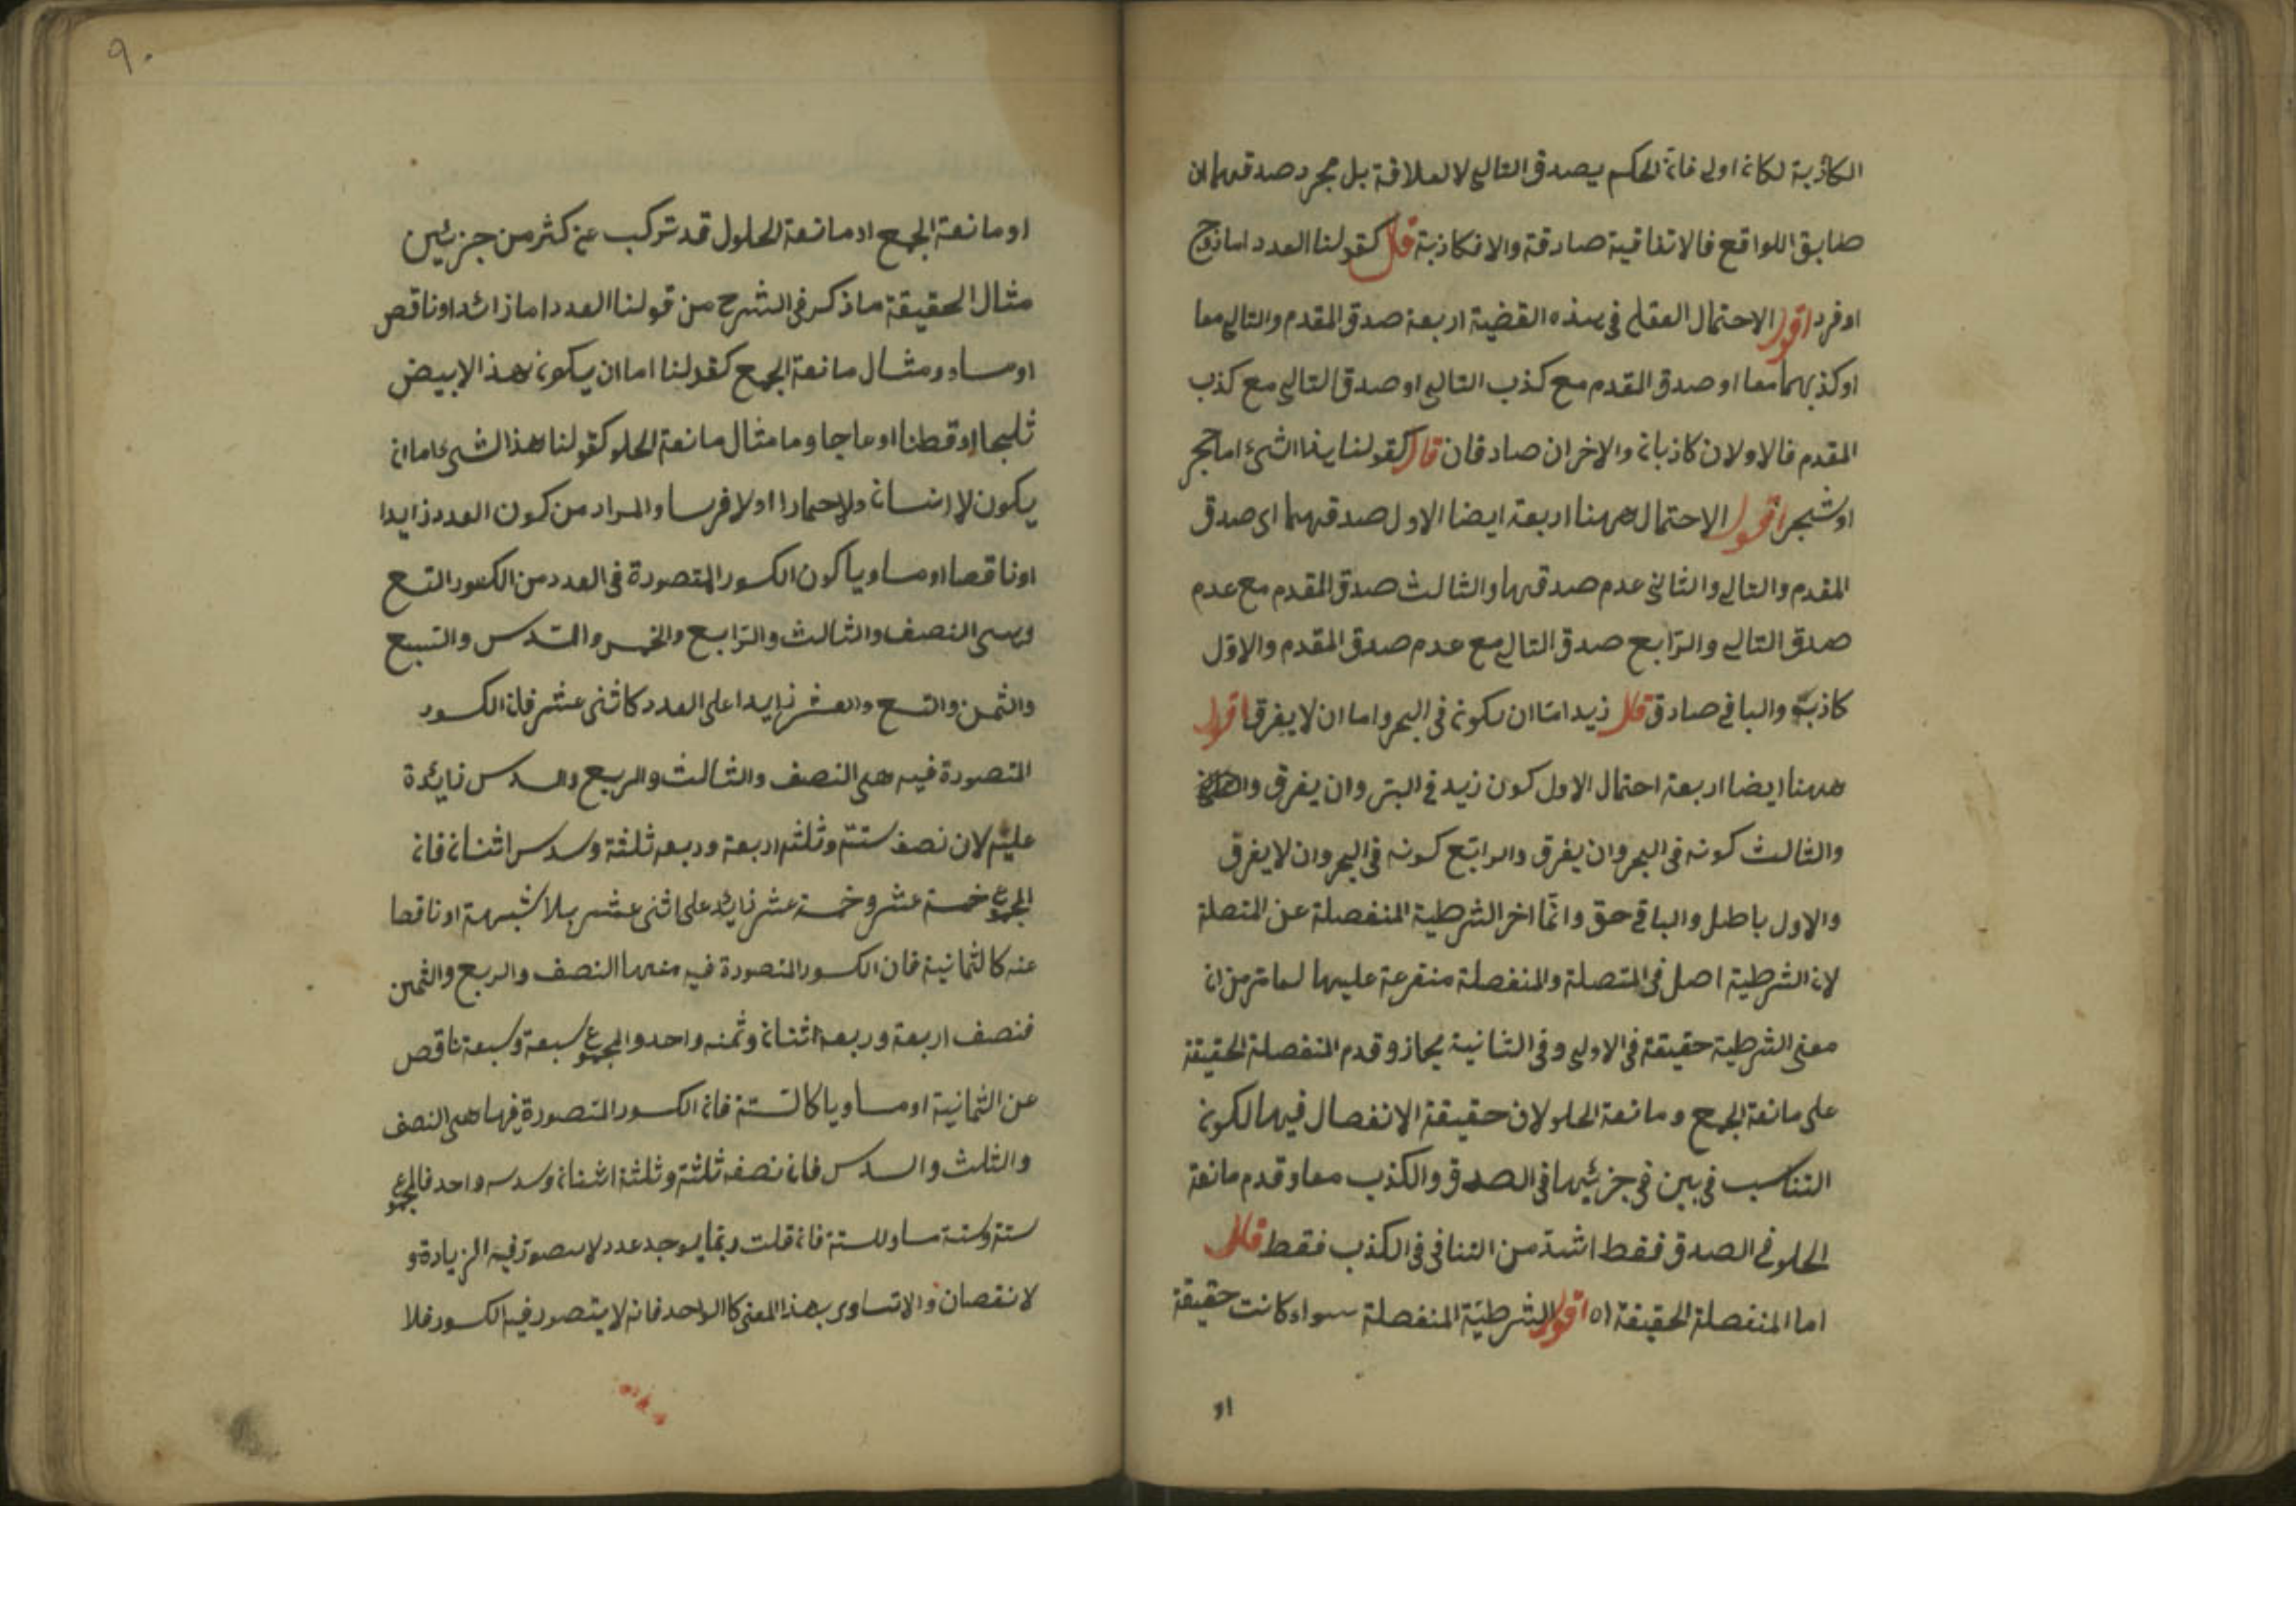 الكاذبة لكان اولى فان الحكم بصدق التالى لا لعلاقة بل مجرد صدقهما ان
طابق اللواقع فالاتفاقية صادقة والا فكاذبة قال كقولنا العدد اما زوج
او فرد اقول الاحتمال العقلى فى هذه القضية اربعة صدق المقدم والتالى معا
او كذبهما معا او صدق المقدم مع كذب التالى او صدق التالى مع كذب
المقدم فالاولان كاذبان والاخران صادقان قال كقولنا هذا الشئ اما حجر
او شجر اقول الاحتمال ههنا اربعة ايضا الاول صدقهما اى صدق
المقدم والتالى والثانى عدم صدقهما والثالث صدق المقدم مع عدم
صدق التالى والرّابع صدق التالى مع عدم صدق المقدم والاوّل
كاذب والباقى صادق قال زيد امّا ان يكون فى البحر واما ان لا يغرق اقول
ههنا ايضا اربعة احتمال الاول كون زيد فى البرّ وان يغرق
والثالث كونه فى البحر وان يغرق والرابع كونه فى البحر وان لا يغرق
والاول باطل والباقى حق وانّما اخر الشرطية المنفصلة عن المتصلة
لان الشرطية اصل فى المتصلة والمنفصلة متفرعة عليها لما مرّ من ان
معنى الشرطية حقيقة فى الاولى وفى الثانية مجاز وقدم المنفصلة الحقيقة
على مانعة الجمع ومانعة الخلو لان حقيقة الانفصال فيها لكون
التناسب فى بين فى جزئيها فى الصدق والكذب معا وقدم مانعة
الخلو فى الصدق فقط اشدّ من التنافى فى الكذب فقط قال
اما المنفصلة الحقيقة اه اقول الشرطيّة المنفصلة سواء كانت حقيقة
او
٩٠
او مانعة الجمع او مانعة الخلول قد تركب عن كثر من جزئين
مثال الحقيقة ما ذكر فى الشرح من قولنا العدد اما زائد او ناقص
او مساو ومثال مانعة الجمع كقولنا اما ان يكون هذ الابيض
ثلجا او قطنا او عاجا وما مثال مانعة الخلو كقولنا هذ الشئ اما ان
يكون لا انسانا ولا حمارا او لا فرسا والمراد من كون العدد زايدا
او ناقصا او مساويا كون الكسور المتصورة فى العدد من الكسور التسع
وهى النصف والثالث والرّابع والخمس والسّدس والسّبع
والثمن والتسع والعشر زايدا على العدد كاثنى عشر فان الكسور
المتصورة فيه هى النصف والثالث والربع والسدس زايدة
عليه لان نصفه ستّة وثلثه اربعة وربعه ثلثة وسدس اثنان فان
المجموع خمسة عشر وخمسة عشر زايد على اثنى عشر بلا شبهة او ناقصا
عنه كالثمانية فان الكسور المتصورة فيه منها النصف والربع والثمن
فنصف اربعة وربعه اثنان وثمنه واحد والمجموع سبعة وسبعة ناقص
عن الثمانية او مساويا كالستة فان الكسور المتصورة فيها هى النصف
والثلث والسدس فان نصفه ثلثة وثلثة اثنان وسدسه واحد فالمجموع
ستة وستة مساو للستة فان قلت ربّما يوجد عدد لا يتصوّر فيه الزيادة و
لا نقصان والاتساوى بهذ المعنى كا الواحد فانه لا يتصور فيه الكسور فلا